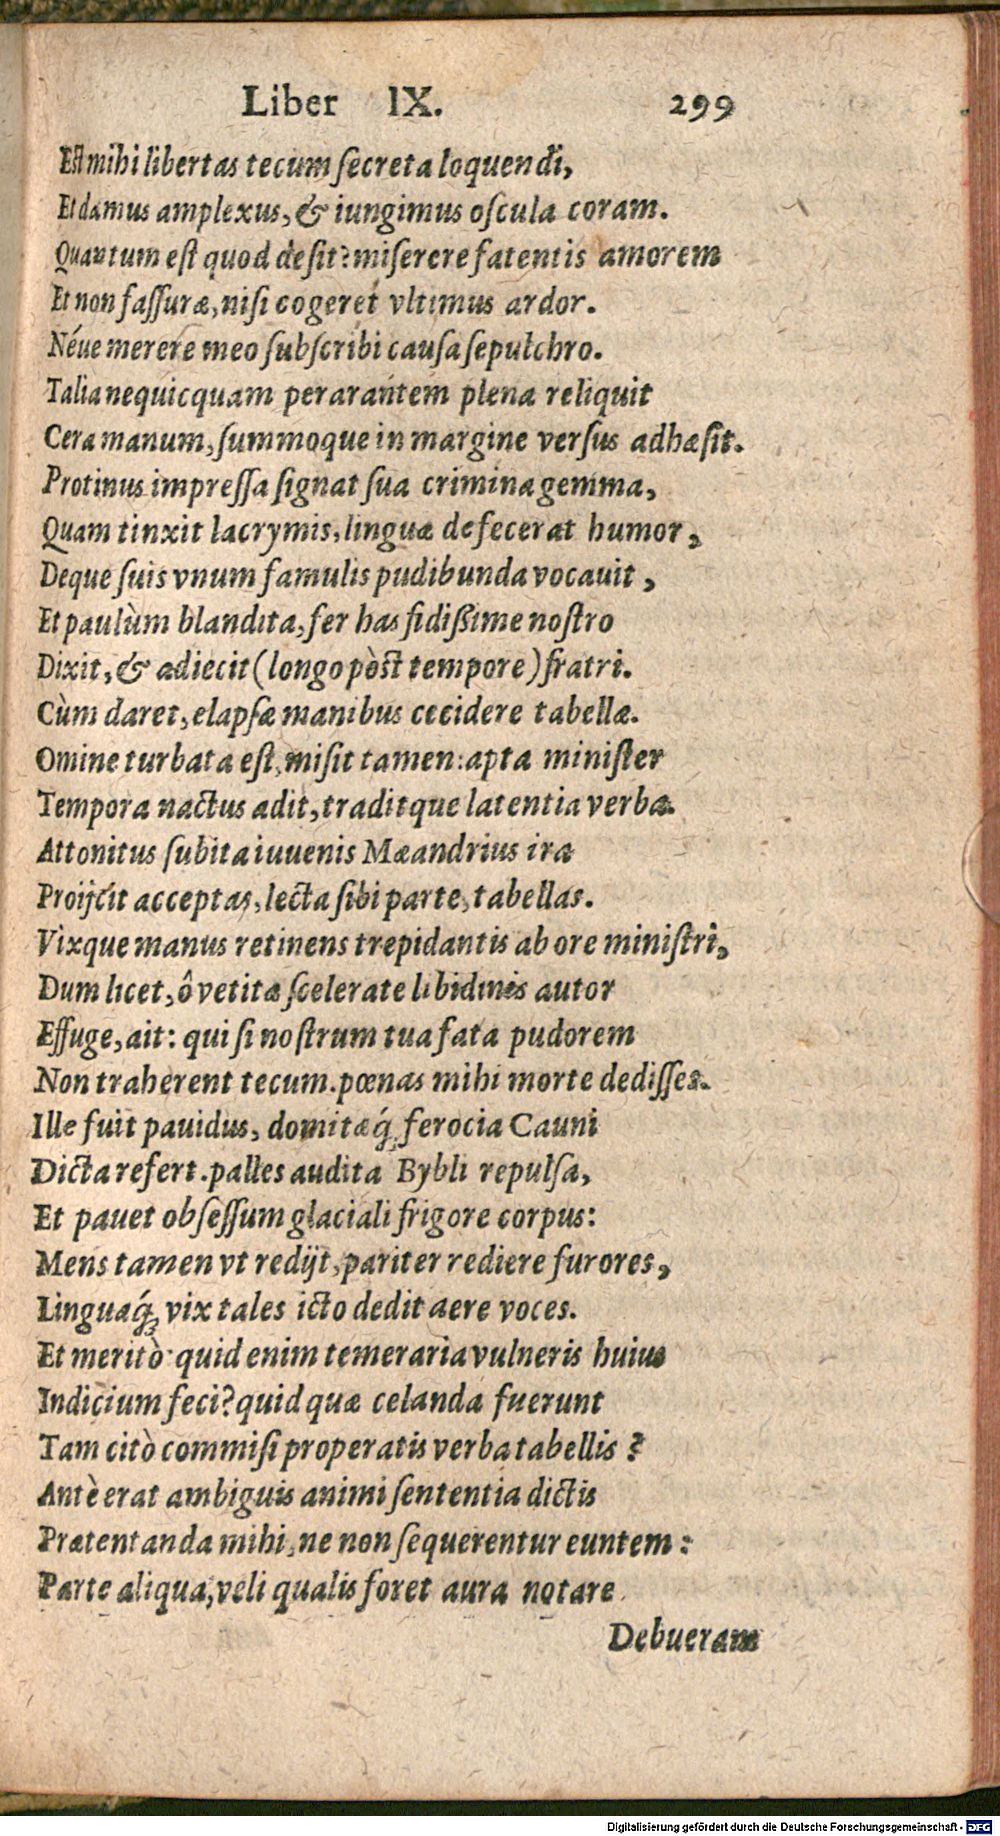 Liber IX. 299
Est mihi libertas tecum ſecreta loquendi,
Et damus amplexus, & iungimus oſcula coram.
Quantum eſt quod deſit? miſerere fatentis amorem
Et non faſſuræ, niſi cogeret vltimus ardor.
Néue merere meo ſubſcribi cauſa ſepulchro.
Talia nequicquam perarantem plena reliquit
Cera manum, ſummoque in margine verſus adhæſit.
Protinus impreſſa ſignat ſua crimina gemma,
Quam tinxit lacrymis, linguæ defecerat humor,
Deque ſuis vnum famulis pudibunda vocauit,
Et paulùm blandita, fer has fidißime noſtro
Dixit, & adiecit (longo pòſt tempore) fratri.
Cùm daret, elapſæ manibus cecidere tabellæ.
Omine turbata eſt, miſit tamen: apta miniſter
Tempora nactus adit, traditque latentia verba.
Attonitus ſubita iuuenis Mæandrius ira
Proijcit acceptas, lecta ſibi parte, tabellas.
Vixque manus retinens trepidantis ab ore miniſtri,
Dum licet, ô vetitæ ſcelerate libidinis autor
Effuge, ait: qui ſi noſtrum tua fata pudorem
Non traherent tecum. pœnas mihi morte dediſſes.
Ille fuit pauidus, domitæq́; ferocia Cauni
Dicta refert. palles audita Bybli repulſa,
Et pauet obſeſſum glaciali frigore corpus:
Mens tamen vt redijt, pariter rediere furores,
Linguaq́; vix tales icto dedit aere voces.
Et meritò quid enim temeraria vulneris huius
Indicium feci? quid quæ celanda fuerunt
Tam citò commiſi properatis verba tabellis?
Antè erat ambiguis animi ſententia dictis
Prætentanda mihi, ne non ſequerentur euntem:
Parte aliqua, veli qualis foret aura notare
Debueram
Digitalisierung gefördert durch die Deutsche Forschungsgemeinschaft - DFG